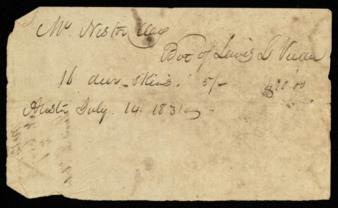 Mr. Nestor Clay
Bot of Lewis L Veeder
16 deer skins 5/- $10.00
Austin July 14. 1831